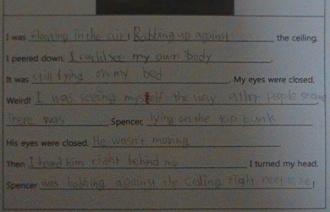 I was floating in the air! Bobbing up against the ceiling.
I peered down. I could see my own body
It was still lying on my bed. My eyes were closed.
Weird! I was seeing myself the way other people seeing
There was Spencer, lying on the top bunk
His eyes were closed. He wasn't moving
Then I heard him right behind me I turned my head.
Spencer was bobbing against the ceiling right next to me!